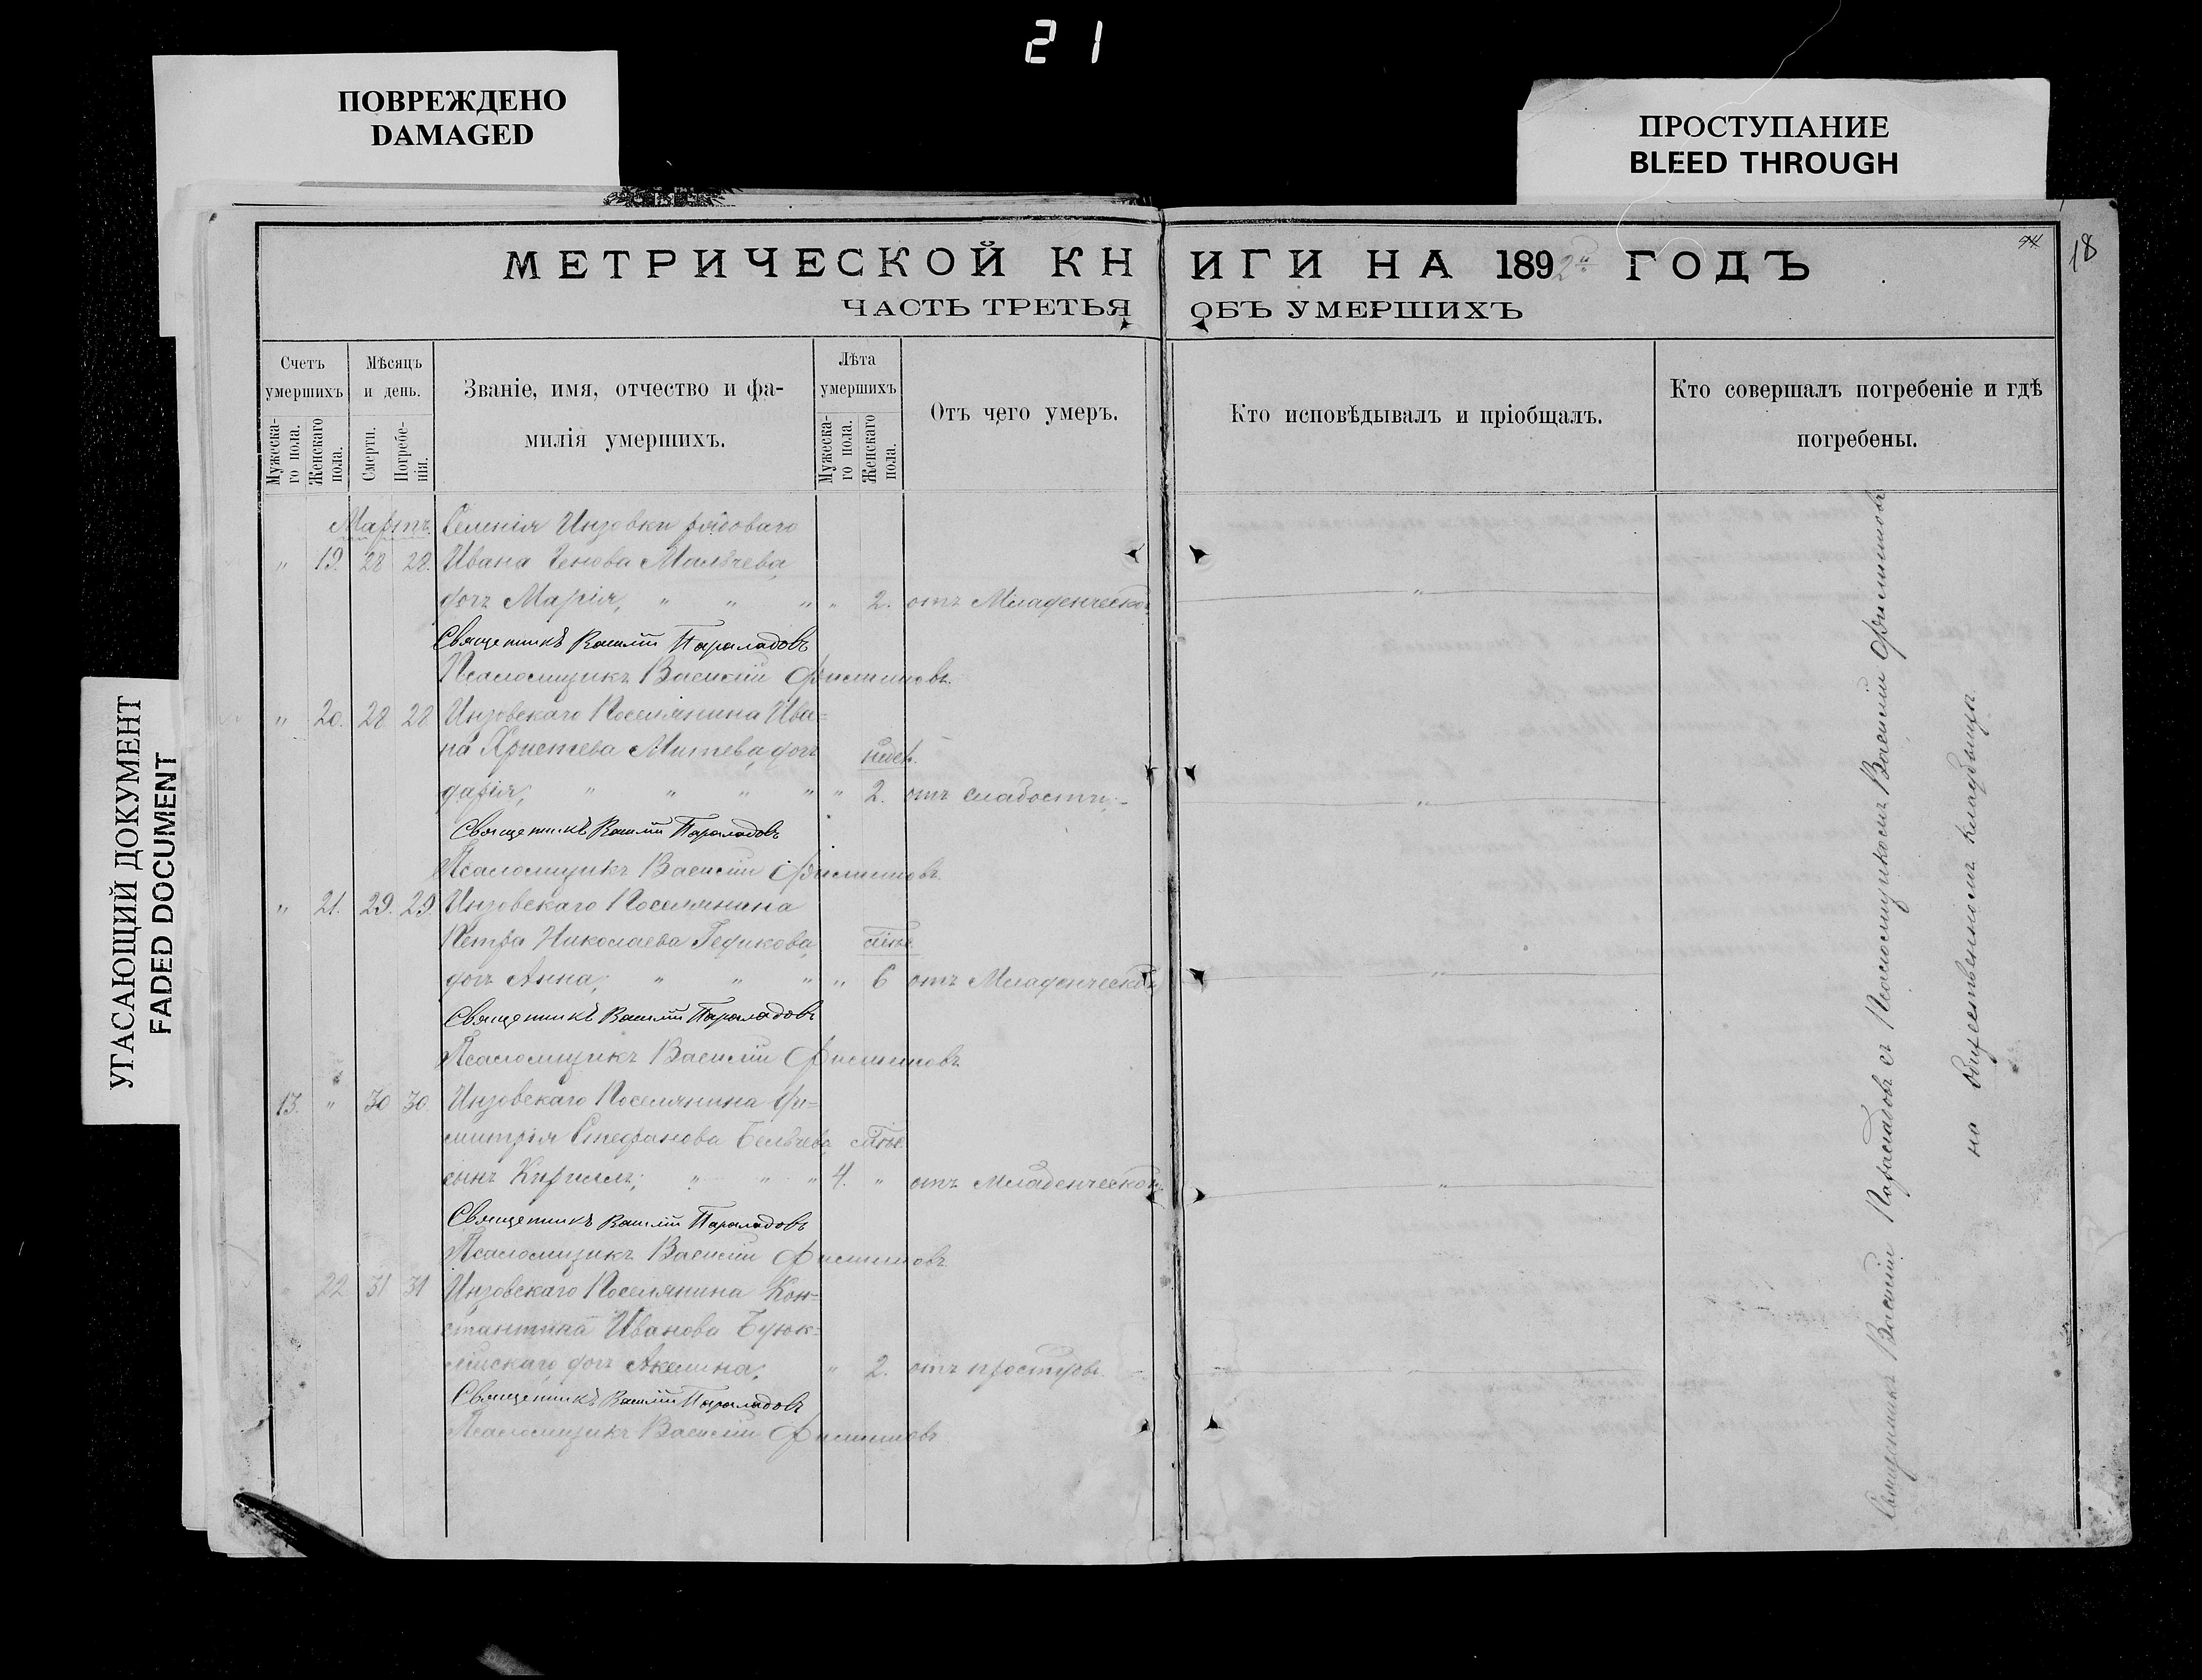 21
ПОВРЕЖДЕНО
DAMAGED
ПРОСТУПАНИЕ
BLEED THROUGH
УГАСАЮЩИЙ ДОКУМЕНТ
FADED DOCUMENT
МЕТРИЧЕСКОЙ КНИГИ НА 1892й ГОДЪ
18
ЧАСТЬ ТРЕТЬЯ ОБЪ УМЕРШИХЪ
Счетъ умершихъ
Мужескаго пола.
Женскаго пола.
Мѣсяцъ и день.
Смерти.
Погребенія.
Званіе, имя, отчество и фамилія умершихъ.
Лѣта умершихъ
Мужескаго пола.
Женскаго пола.
Отъ чего умеръ.
Кто исповѣдывалъ и пріобщалъ.
Кто совершалъ погребеніе и гдѣ погребены.
Мартъ. Селенія Инзовки рядоваго
" 19. 28 28. Ивана Генова Мальчева,
дочь Марія, " " " " 2. отъ Младенческой "
Священникъ Василій Параладовъ
Псаломщикъ Василій Филиповъ.
" 20. 28 28 Инзовскаго Поселянина Ива=
на Христева Митева, дочь недѣл.
Дарія; " " " " " 2. отъ слабости, - "
Священникъ Василій Параладовъ
Псаломщикъ Василій Филиповъ.
" 21. 29. 29. Инзовскаго Поселянина
Петра Николаева Гедикова, мѣс.
дочь Анна; " " " " 6 отъ Младенческой "
Священникъ Василій Параладовъ
Псаломщикъ Василій Филиповъ
13. " 30 30. Инзовскаго Поселянина Ди=
митрія Стефанова Бельчева, мѣс.
сынъ Кириллъ; " " " 4. " отъ Младенческой. "
Священникъ Василій Параладовъ
Псаломщикъ Василій Филиповъ
22 31 31 Инзовскаго Поселянина Кон=
стантина Иванова Буюк=
лійскаго, дочь Акилина; " 2. отъ простуды. "
Священникъ Василій Параладовъ
Псаломщикъ Василій Филиповъ
Священникъ Василій Параладовъ съ Псаломщикомъ Василіемъ Филиповымъ
на общественномъ кладбищѣ.